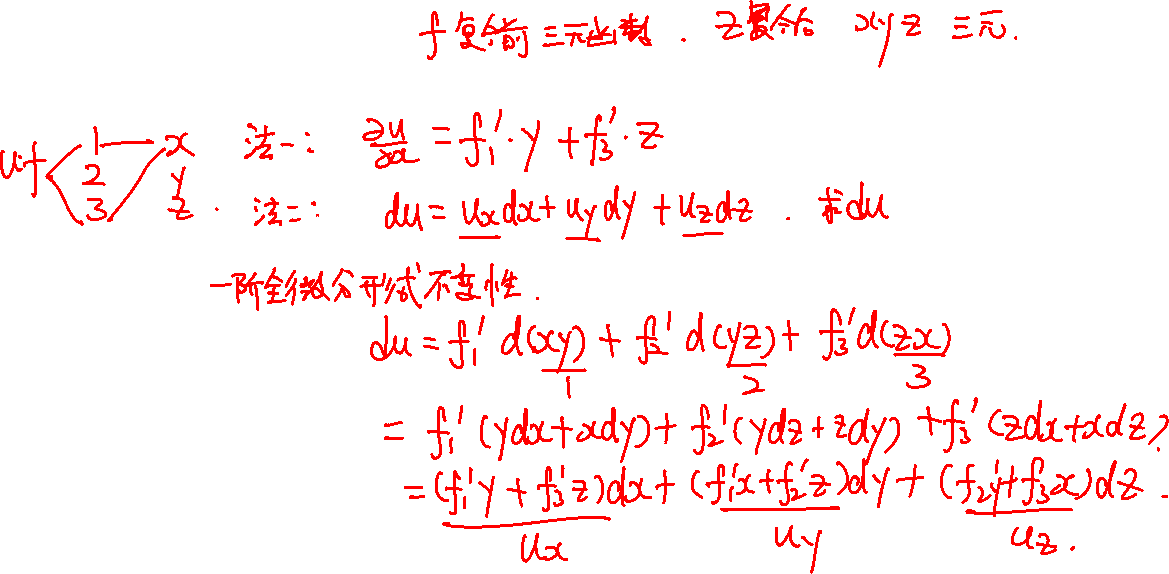 f 复合前 三元函数 . z复合后 xyz 三元.
u:f 1 2 3 x y z . 法一: ∂u/∂x = f₁′·y + f₃′·z
法二: du = uₓdx + u_y dy + u_z dz . 求du
一阶全微分形式不变性.
du = f₁′ d(xy) + f₂′ d(yz) + f₃′ d(zx)
1 2 3
= f₁′(ydx+xdy) + f₂′(ydz+zdy) + f₃′(zdx+xdz)
= (f₁′y + f₃′z)dx + (f₁′x+f₂′z)dy + (f₂′y+f₃′x)dz .
uₓ u_y u_z .